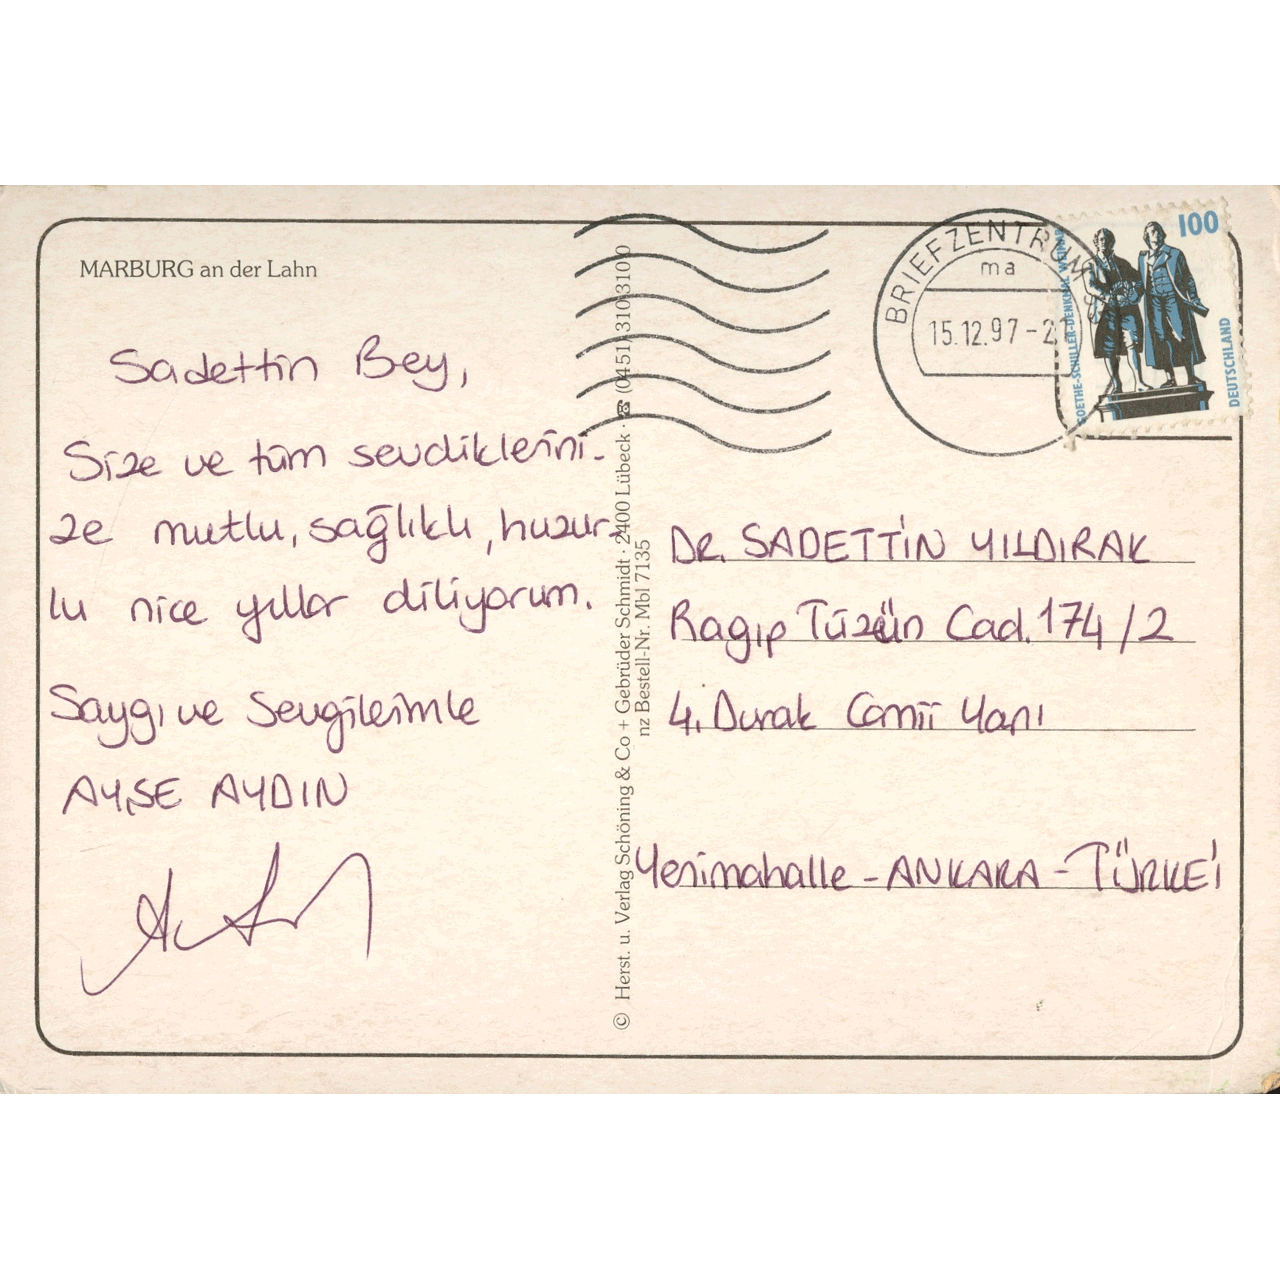 MARBURG an der Lahn
Sadettin Bey,
Size ve tüm sevdiklerini-
ze mutlu, sağlıklı, huzur-
lu nice yıllar diliyorum.
Saygı ve Sevgilerimle
AYŞE AYDIN
© Herst. u. Verlag Schöning & Co + Gebrüder Schmidt · 2400 Lübeck · ☎ (0451) 310310
nz Bestell-Nr. Mbl 7135
BRIEFZENTRUM
ma
15.12.97-2
100
GOETHE-SCHILLER-DENKMAL WEIMAR
DEUTSCHLAND
DR. SADETTİN YILDIRAK
Ragıp Tüzün Cad. 174/2
4. Durak Camii Yanı
Yenimahalle - ANKARA - TÜRKEİ